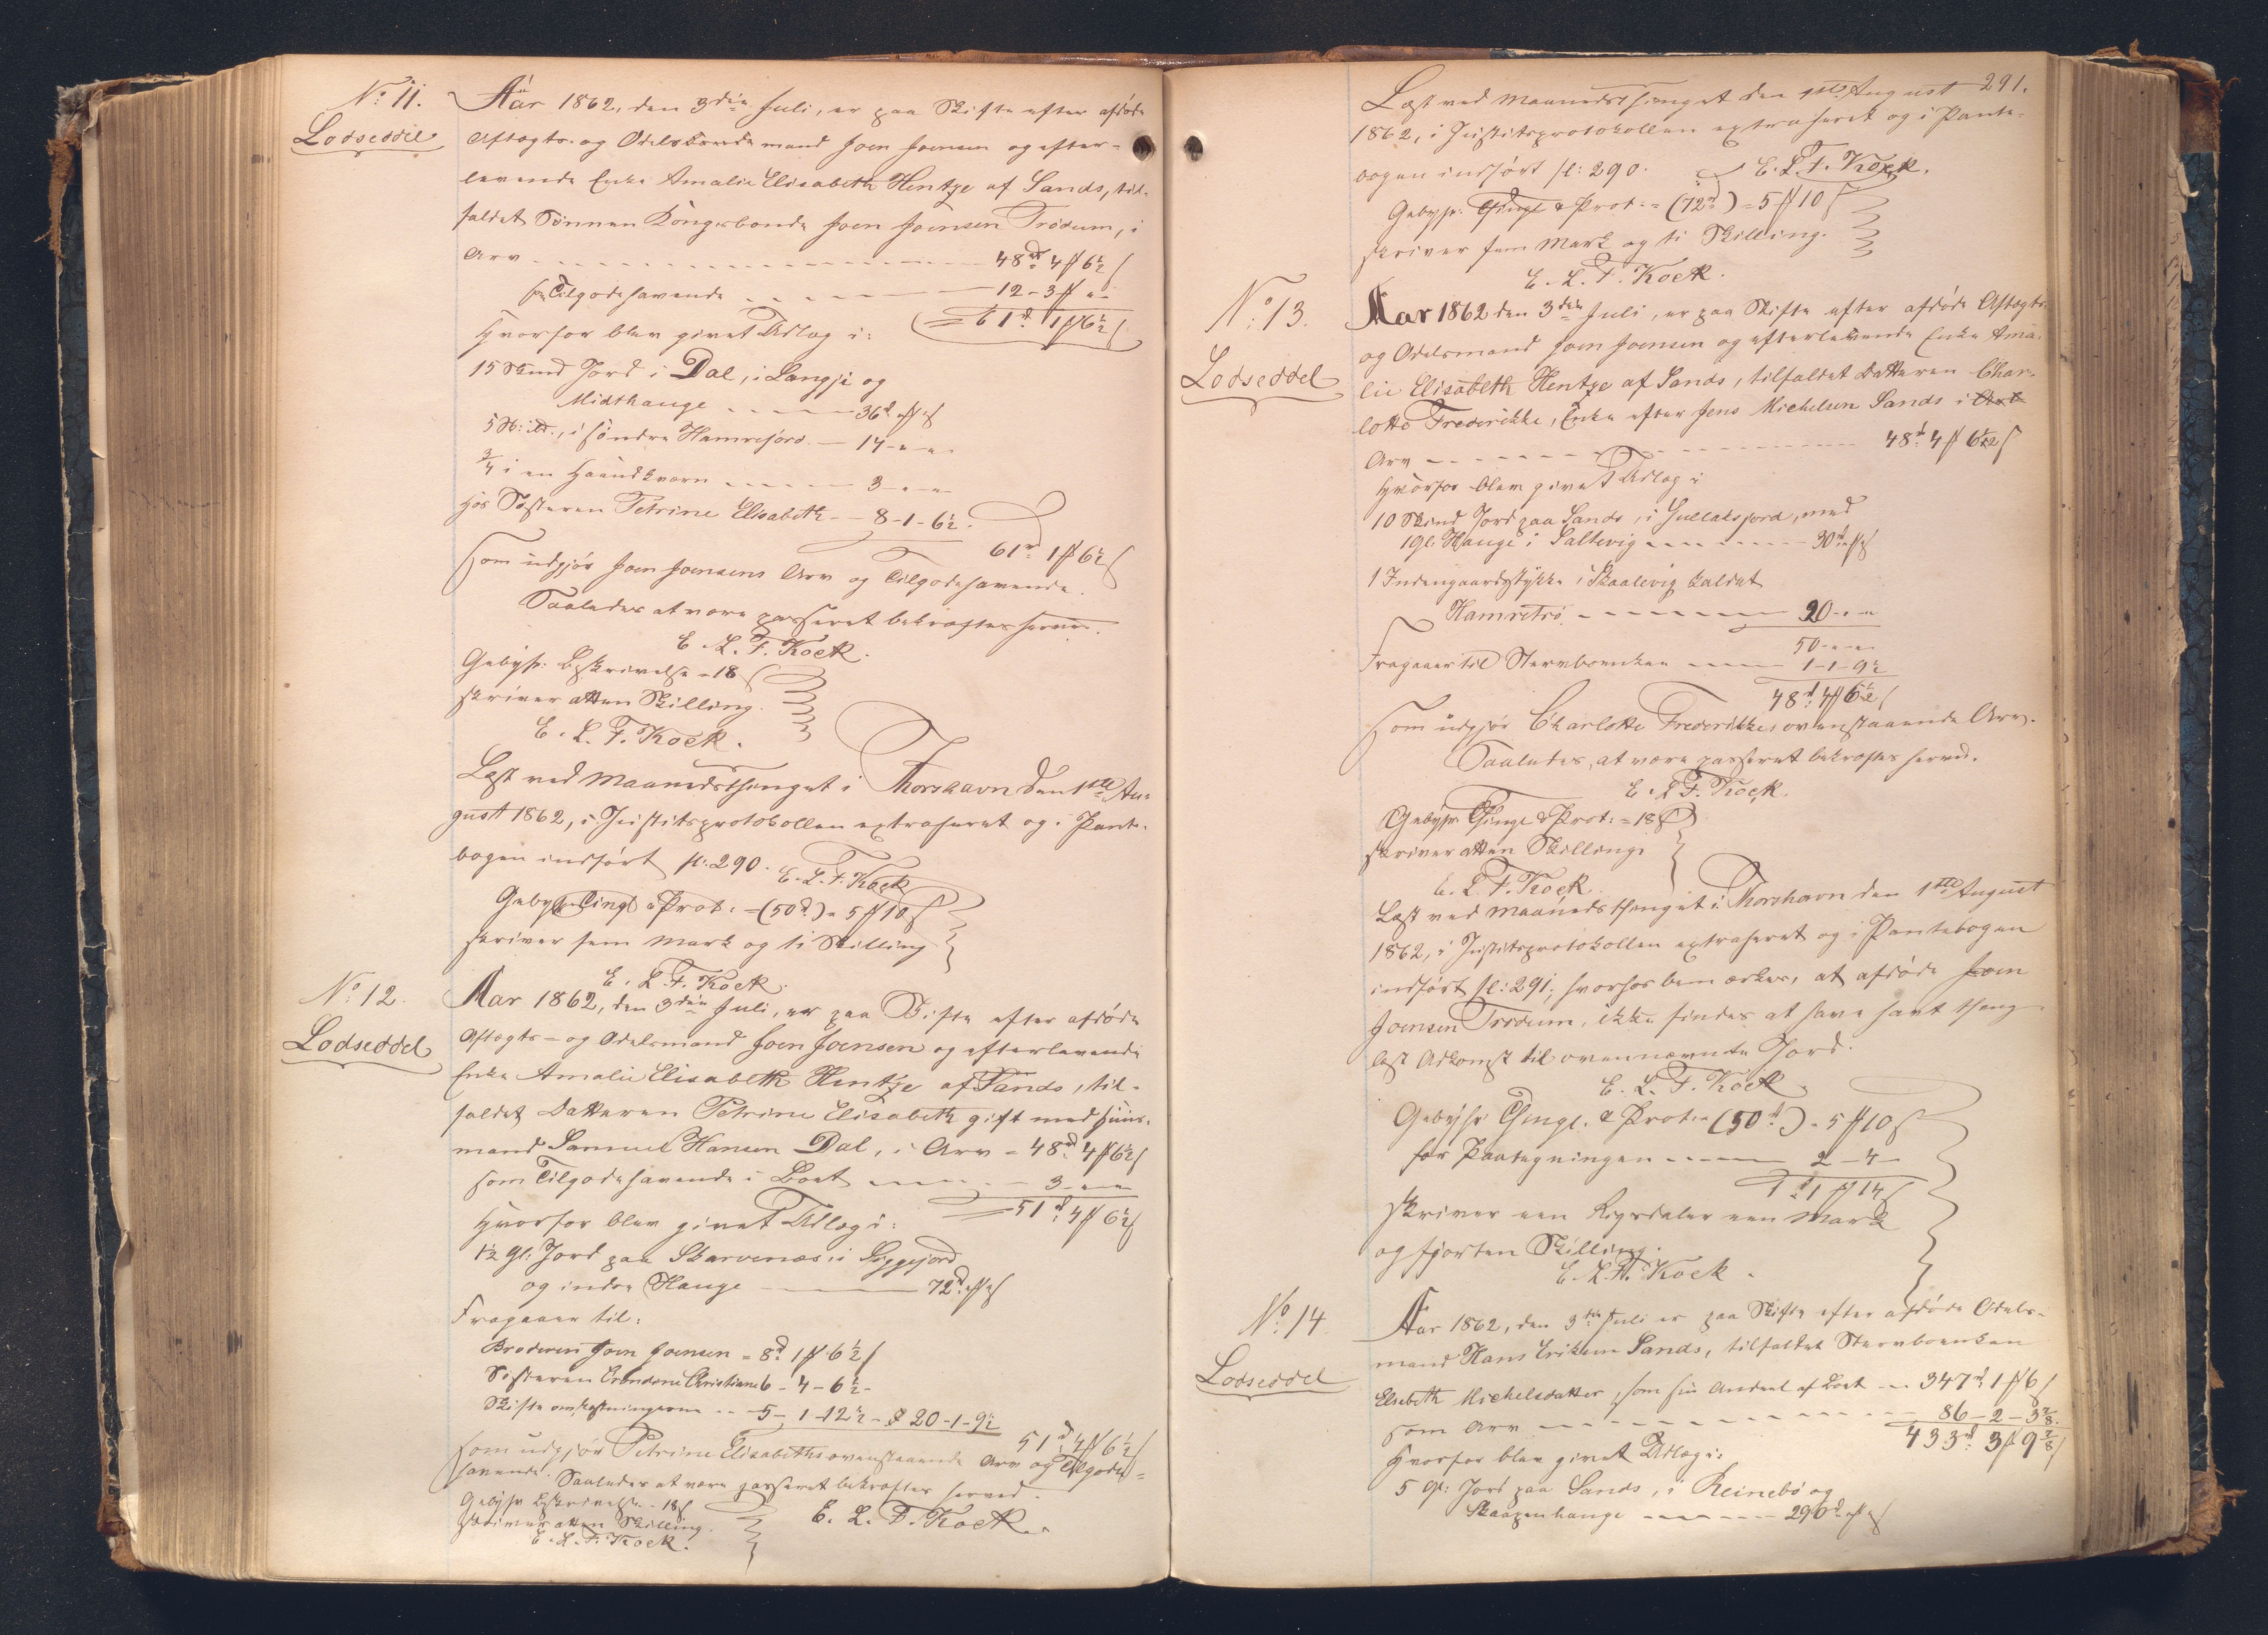 No: 11.
Lodseddel
Aar 1862, den 3die Juli, er paa Skifte efter afdøde
Aftægts- og Odelsbondemand Joen Joensen og efter-
levende Enke Amalie Elisabeth Hentze af Sands, til-
faldet Sønnen Kongsbonde Joen Joensen Trödum, i
Arv - - - 48rd 4 ℳ 6½ ß
pr Tilgodehavende - - - 12 - 3 ℳ " -
61rd 1 ℳ 6½ ß
Hvorfor blev givet Udlæg i:
15 Skind Jord i Dal, i Langji og
Midthauge - - - 36rd " ℳ " ß
5 Sk: do., i söndre Hamrejord - 14 - " - "
¾ i en Haandkværn - - - 3 - " - "
Hos Søsteren Petrine Elisabeth - - 8 - 1 - 6½
61rd 1 ℳ 6½ ß
Som udgjør Joen Joensens Arv og Tilgodehavende.
Saaledes at være passeret bekræftes herved.
E. L. F. Kock.
Gebyhr: Beskrivelse = 18 ß
skriver atten Skilling.
E. L. F. Kock.
Læst ved Maanedsthinget i Thorshavn den 1ste Au-
gust 1862, i Justitsprotokollen extraheret og i Pante-
bogen indført fl: 290.
E. L. F. Kock
Gebyhr Tingl & Prot: = (50rd) = 5 ℳ 10 ß
skriver fem Mark og ti Skilling
E. L. F. Kock.
No: 12.
Lodseddel
Aar 1862, den 3die Juli, er paa Skifte efter afdøde
Aftægts- og Odelsmand Joen Joensen og efterlevende
Enke Amalie Elisabeth Hentze af Sands, til-
faldet Datteren Petrine Elisabeth gift med Huus-
mand Samuel Hansen Dal, i Arv = 48rd 4 ℳ 6½ ß
som Tilgodehavende i Boet - - - 3 - " - "
51rd 4 ℳ 6½ ß
Hvorfor blev givet Udlæg i:
1½ Gl: Jord paa Skarvenæs i Siggejord
og indre Hauge - - - 72rd " ℳ " ß
Fragaaer til:
Broderen Joen Joensen = 8rd 1 ℳ 6½ ß
Søsteren Christiane 6 - 4 - 6½ -
Skifteomkostningerne - - 5 - 1 - 12½ - 20 - 1 - 9½
51rd 4 ℳ 6½ ß
som udgjør Petrine Elisabeths ovenstaaende Arv og Tilgode-
havende. Saaledes at være passeret bekræftes herved.
Gebyhr Beskrivelse - 18 ß
skriver atten Skilling.
E. L. F. Kock.
E. L. F. Kock.
291.
Læst ved Maanedsthinget den 1ste August
1862, i Justitsprotokollen extraheret og i Pante-
bogen indført fl: 290.
E. L. F. Kock.
Gebyhr: Thingl & Prot: = (72rd) = 5 ℳ 10 ß
skriver fem Mark og ti Skilling.
E. L. F. Kock.
No: 13.
Lodseddel
Aar 1862 den 3die Juli, er paa Skifte efter afdøde Aftægts-
og Odelsmand Joen Joensen og efterlevende Enke Ama-
lie Elisabeth Hentze af Sands, tilfaldet Datteren Char-
lotte Frederikke, Enke efter Jens Michelsen Sands i Arv
Arv - - - 48rd 4 ℳ 6½ ß
Hvorfor blev givet Udlæg i
10 Skind Jord paa Sands, i Gullaksjord, med
1 Gl: Hauge i Saltevig - - - 30rd " ℳ " ß
1 Indengaardsstykke i Skaalevig kaldet
Hamretrö - - - 20 - " - "
50 - " - "
Fragaaer til Stervboenken - - 1 - 1 - 9½
48rd 4 ℳ 6½ ß
som udgjør Charlotte Frederikkes ovenstaaende Arv.
Saaledes, at være passeret bekræftes herved.
E. L. F. Kock.
Gebyhr Thingl & Prot: = 18 ß
skriver atten Skilling
E. L. F. Kock.
Læst ved Maanedsthinget i Thorshavn den 1ste August
1862, i Justitsprotokollen extraheret og i Pantebogen
indført fl: 291; hvorhos bemærkes, at afdøde Joen
Joensen Trödum, ikke findes at have havt thing-
læst Adkomst til ovennævnte Jord.
E. L. F. Kock
Gebyhr Thingl. & Prot. = (50rd) = 5 ℳ 10 ß
for Paategningen - - - 2 - 4 -
1rd 1 ℳ 14 ß
skriver een Rigsdaler een Mark
og fjorten Skilling.
E. L. F. Kock.
No: 14.
Lodseddel
Aar 1862, den 3die Juli er paa Skifte efter afdøde Odels-
mand Hans Eriksen Sands, tilfaldet Stervboenken
Elsebeth Michelsdatter, som sin Andeel af Boet - - 347rd 1 ℳ 6 ß
som Arv - - - 86 - 2 - 3⅞
433rd 3 ℳ 9⅞ ß
Hvorfor blev givet Udlæg i:
5 Gl: Jord paa Sands, i Reinebö og
Skaapenhauge - - - 290rd " ℳ " ß